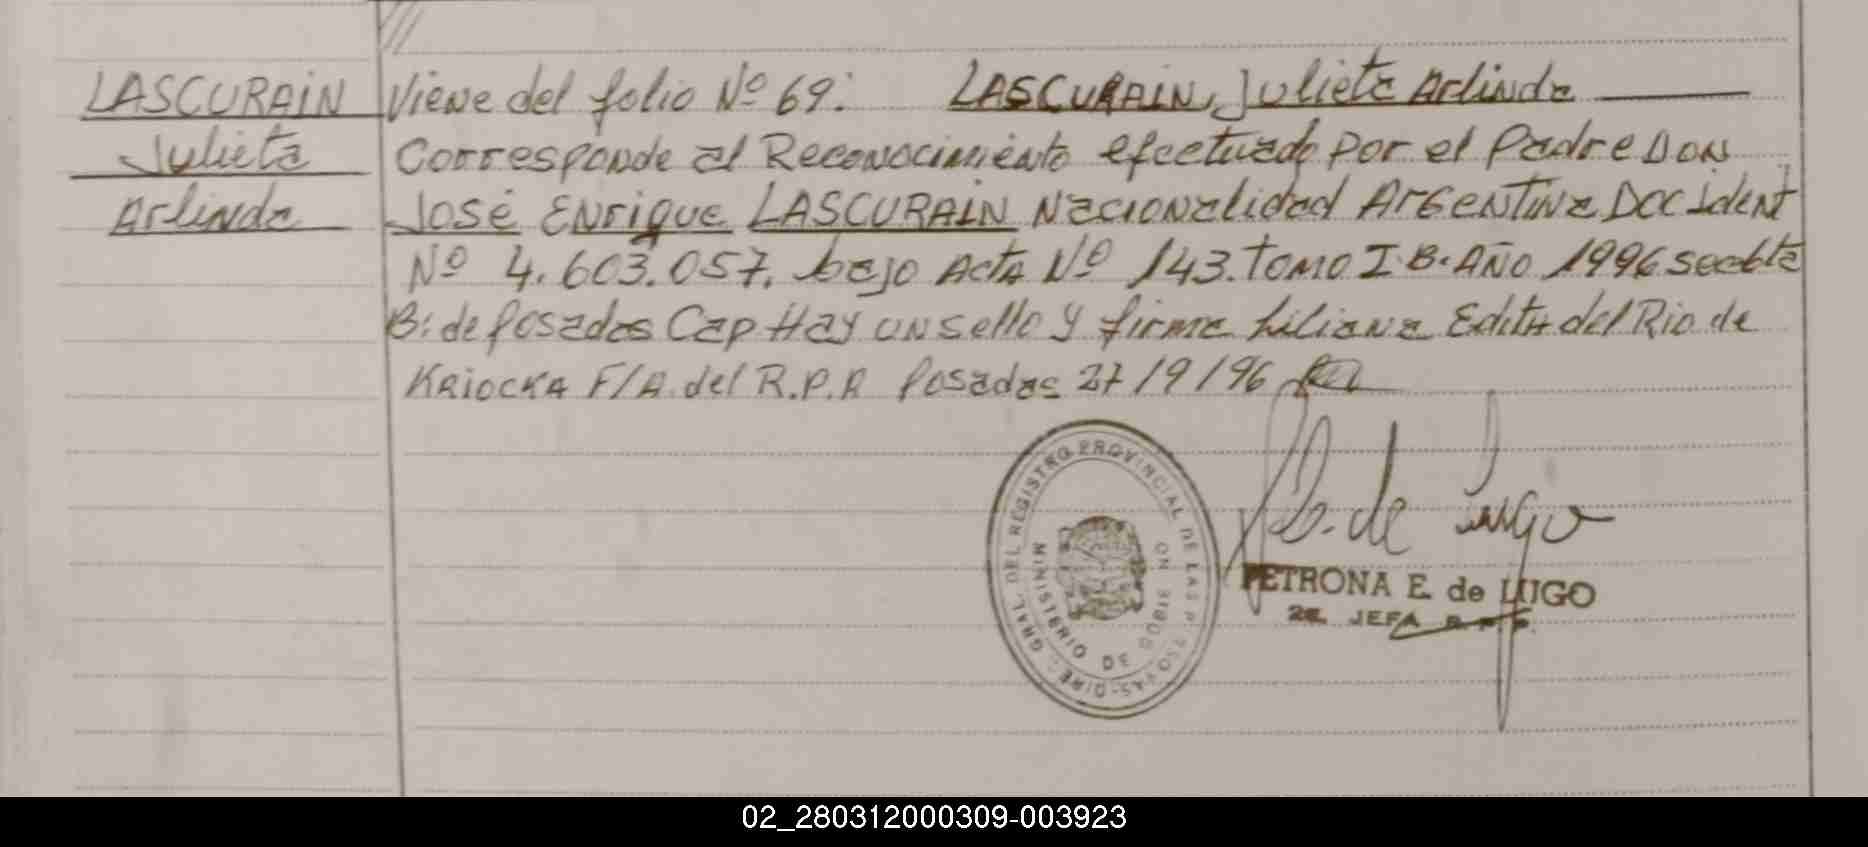 LASCURAIN
Julieta
Arlinda
Viene del folio Nº 69: LASCURAIN, Julieta Arlinda
Corresponde al Reconocimiento efectuado por el Padre DON
José Enrique LASCURAIN Nacionalidad Argentina Doc Ident
Nº 4.603.057. bajo Acta Nº 143. Tomo I B. Año 1996
B: de Posadas Cap Hay un sello y firma Liliana Edith del Rio de
KAIOCKA F/A. del R.P.P. Posadas 27/9/96
de Lugo
PETRONA E. de LUGO
2a. JEFA R.P.P.
GRAL. DEL REGISTRO PROVINCIAL DE LAS P
MINISTERIO DE
02_280312000309-003923